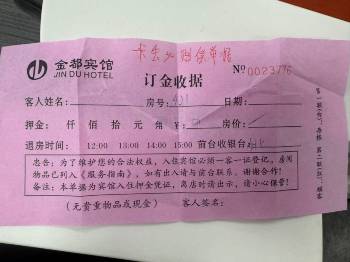 金都宾馆
JIN DU HOTEL
订金收据
No 0023776
客人姓名: 房号: 901 日期:
押金: 仟 佰 拾 元 角 ¥ 房价:
退房时间: 12:00 13:00 14:00 15:00 前台收银台:
忠告: 为了维护您的合法权益, 入住宾馆必须一客一证登记, 房间
物品已列入《服务指南》, 如有出入请与前台联系, 谢谢合作!
备注: 本单据为宾馆入住押金凭证, 离店时请出示, 请小心保管!
(无贵重物品或现金) 客人签名:
第一联(白): 存根 第二联(红): 顾客